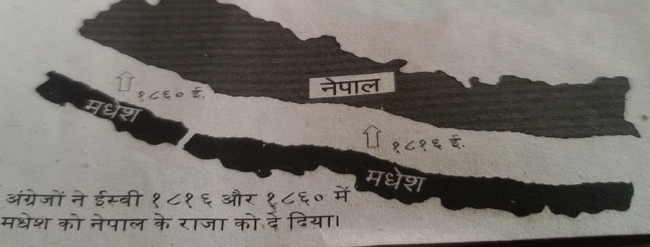 नेपाल
१८६० ई.
मधेश
१८१६ ई.
मधेश
अंग्रेजों ने ईस्वी १८१६ और १८६० में
मधेश को नेपाल के राजा को दे दिया।